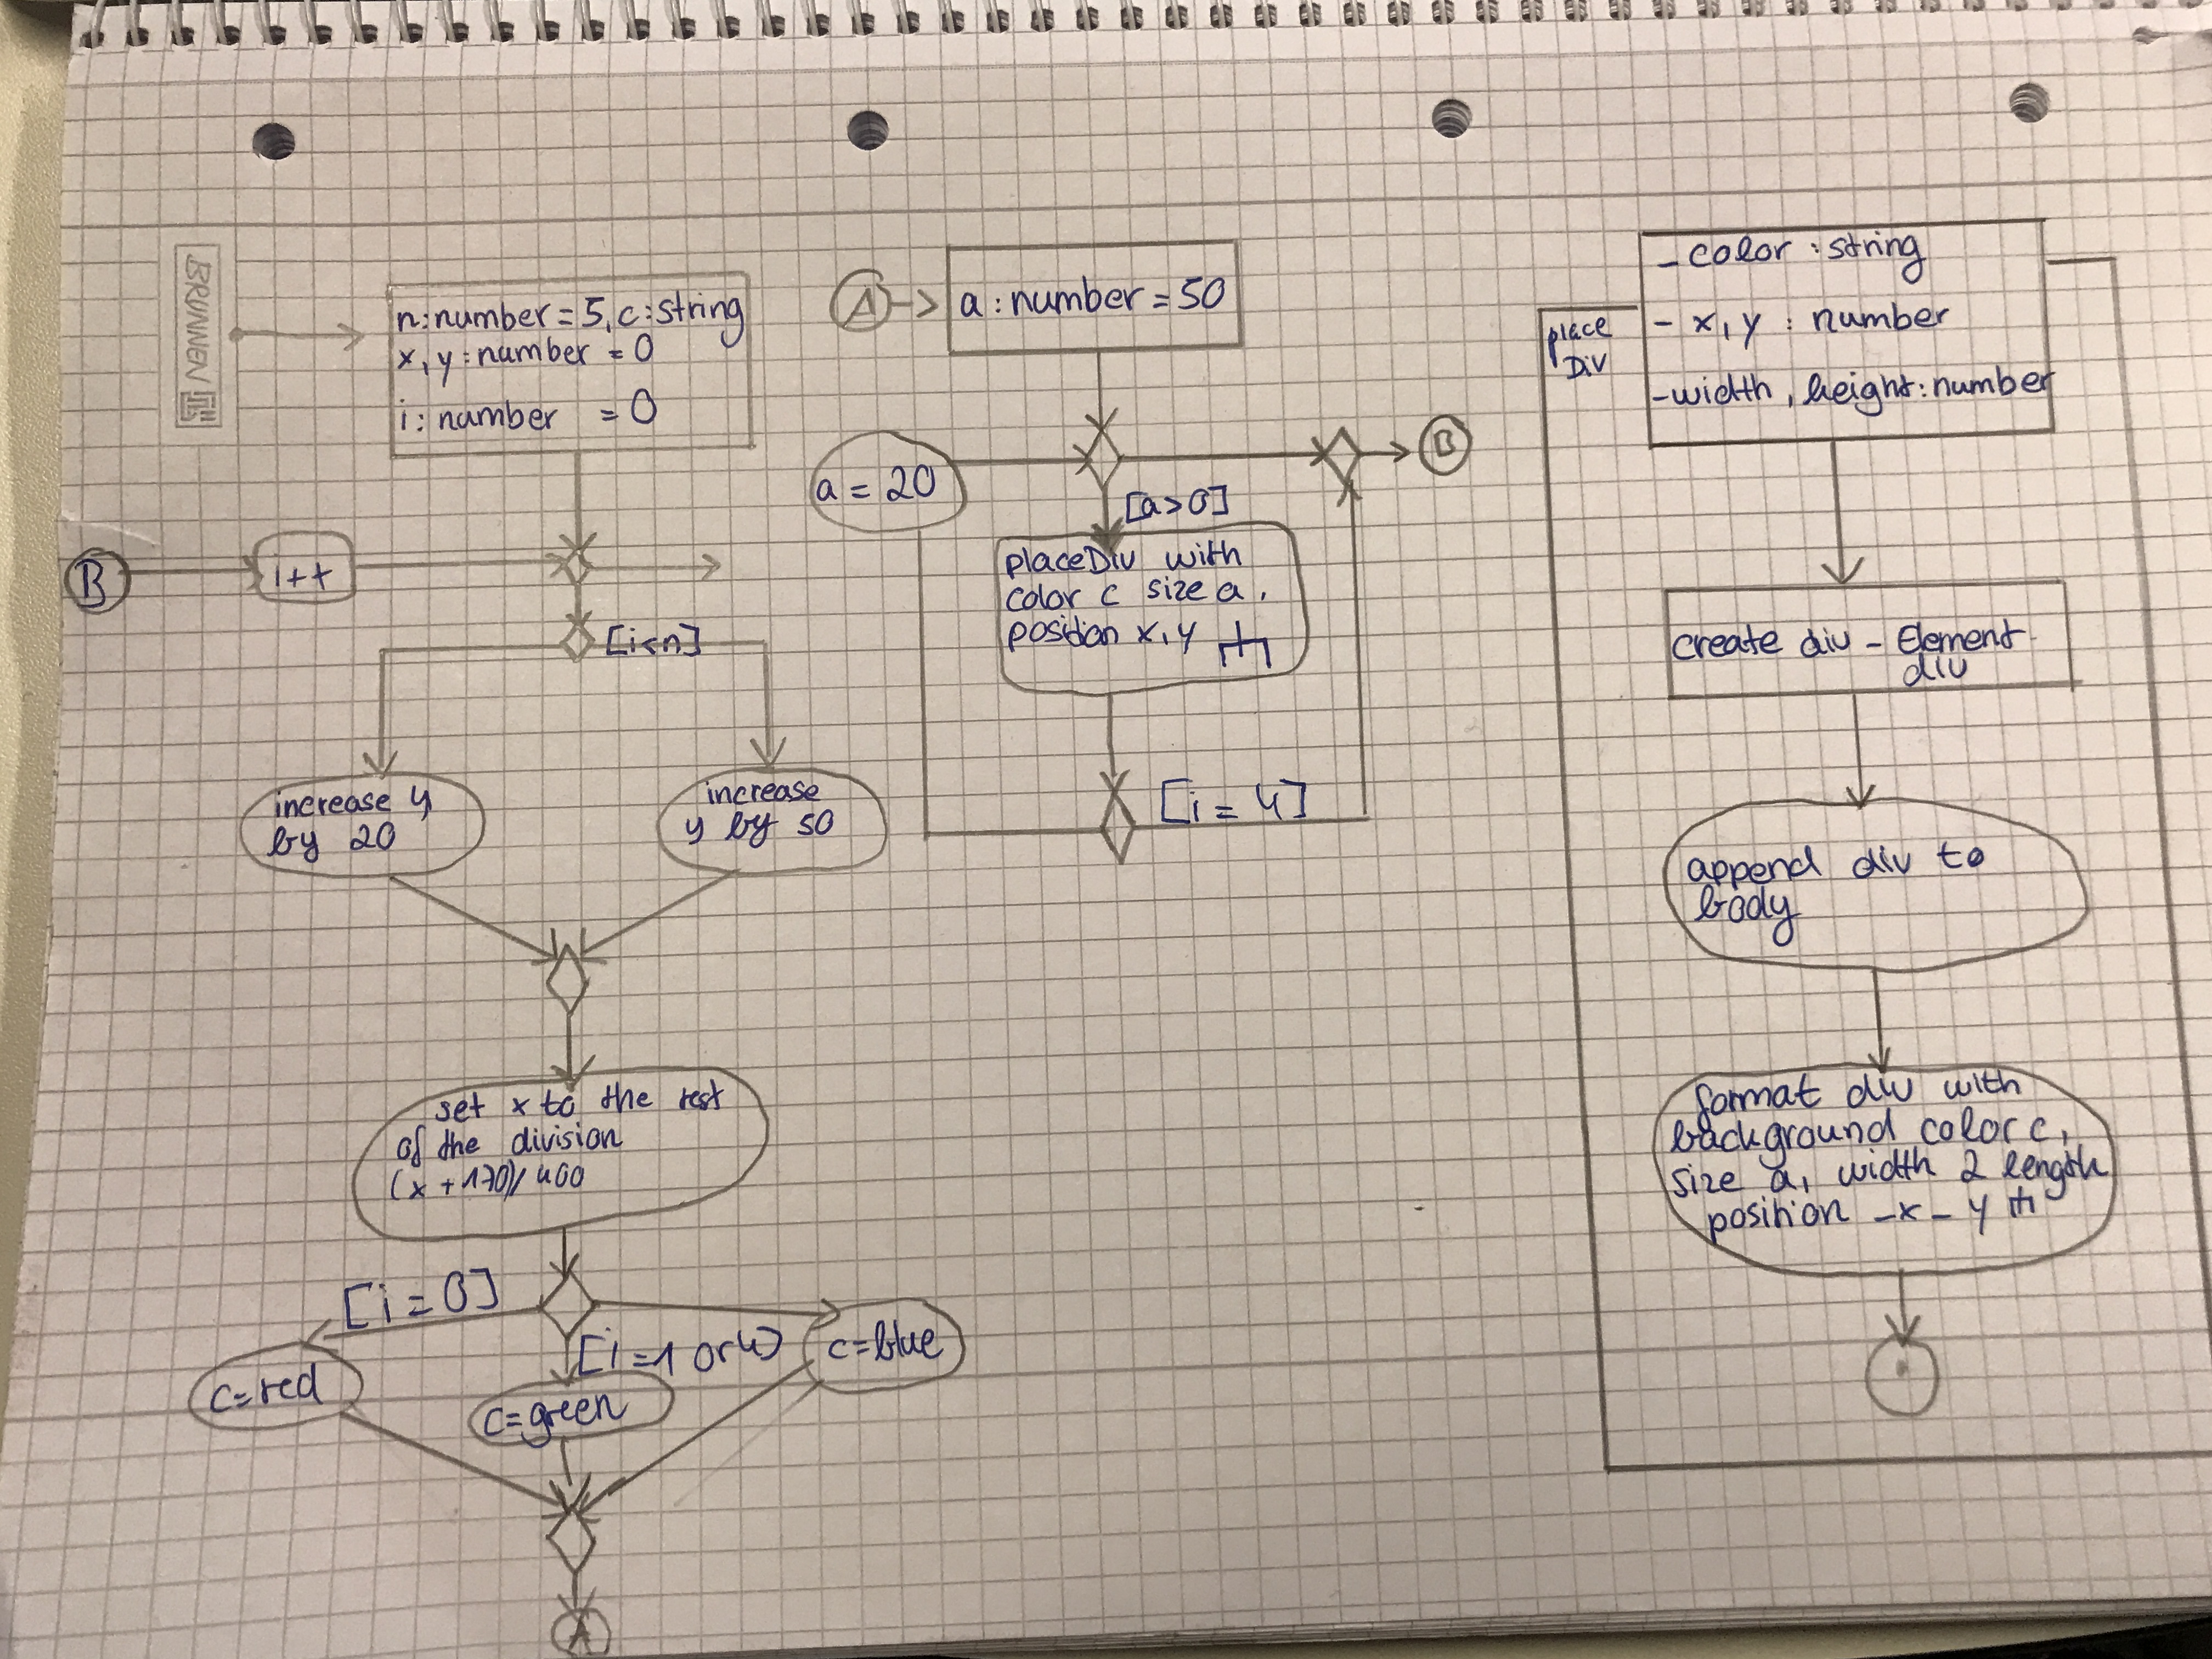 BRUNNEN
n:number=5, c:string
x,y:number=0
i:number = 0
B
i++
[i<n]
increase y
by 20
increase
y by 50
set x to the rest
of the division
(x+170)/400
[i=0]
[i=1 or 4]
c=red
c=green
c=blue
A
a:number=50
a=20
[a>0]
placeDiv with
color c size a,
position x,y
[i=4]
B
place
Div
-color:string
-x,y:number
-width, height:number
create div-Element
div
append div to
body
format div with
background color c,
size a, width 2 length
position -x-y